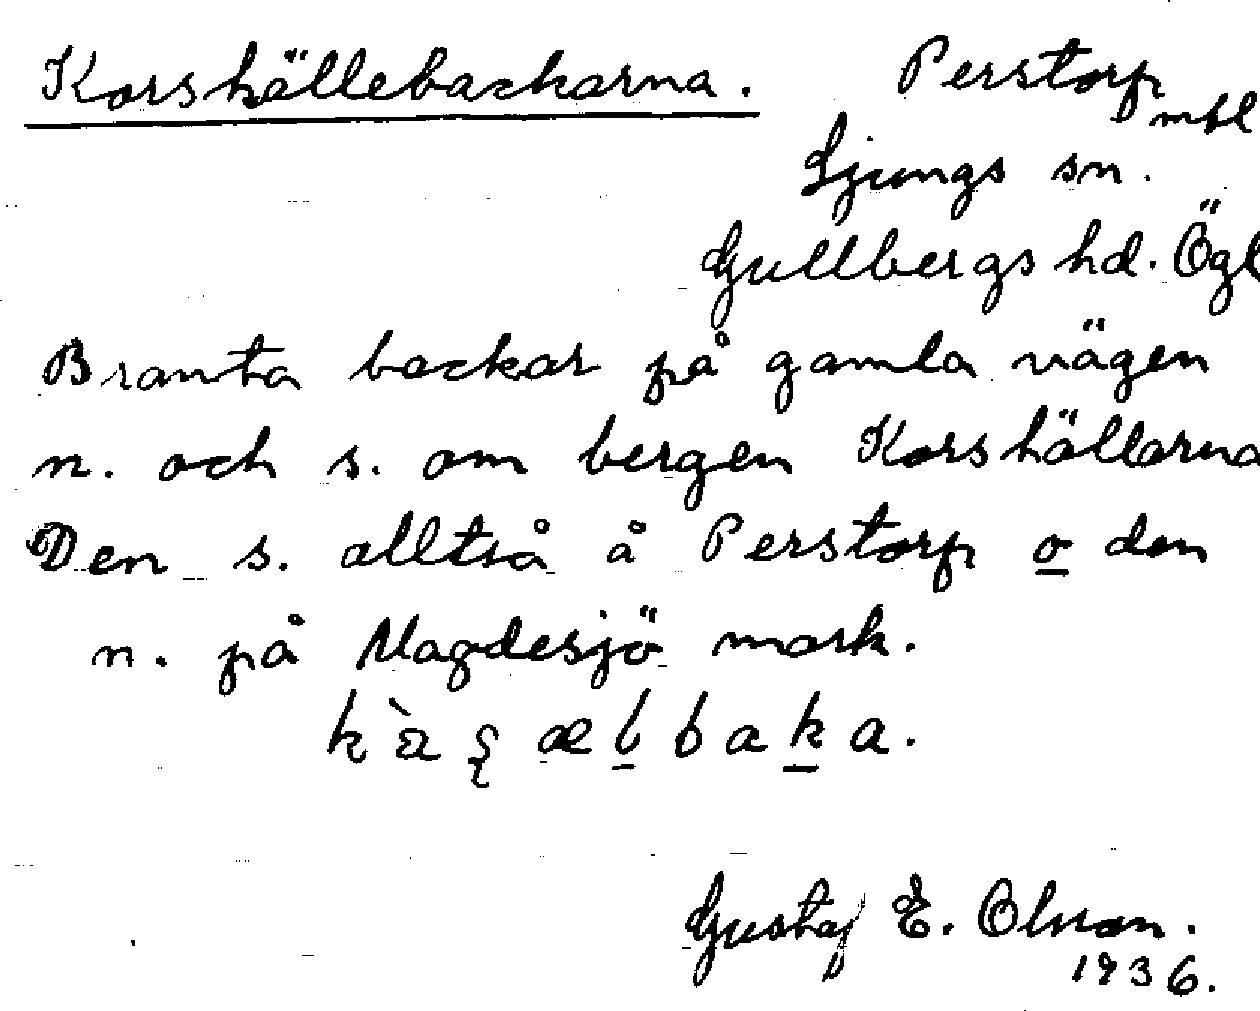 Korshällebackarna. Perstorp
mtl
Ljungs sn.
Gullbergs hd. Ögl
Branta backar på gamla vägen
n. och s. om bergen Korshällarna
Den s. alltså å Perstorp o den
n. på Magdesjö mark.
Gustaf E. Olsson.
1936.